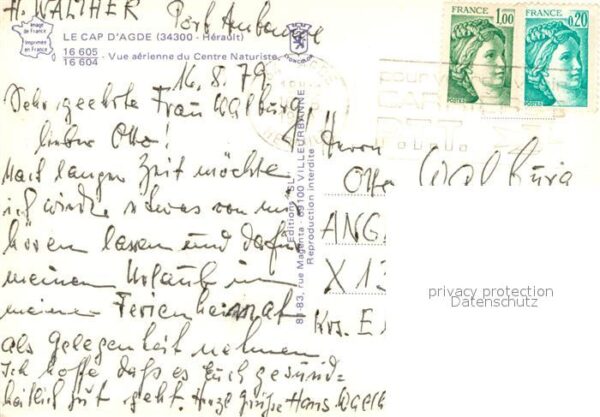 H. WALTHER Port Ambonne
image de France
imprimée en France
LE CAP D'AGDE (34300 - Hérault)
16 605
16 604 - Vue aérienne du Centre Naturiste
16.8.79
Sehr geehrte Frau Walburga
lieber Otto!
Nach langer Zeit möchte
ich wieder etwas von mir
hören lassen und dafür
meinen Urlaub in
meiner Ferienheimat
als Gelegenheit nehmen.
Ich hoffe daß es Euch gesund=
heitlich gut geht. Herzl Grüße Hans Walth
Editions "SL"
81-83, rue Magenta - 69100 VILLEURBANNE
Reproduction interdite
FRANCE
1,00
POSTES
FRANCE
0,20
POSTES
pour
P.T.T.
Herrn
Otto
ANG
X 13
Krs. E
privacy protection
Datenschutz